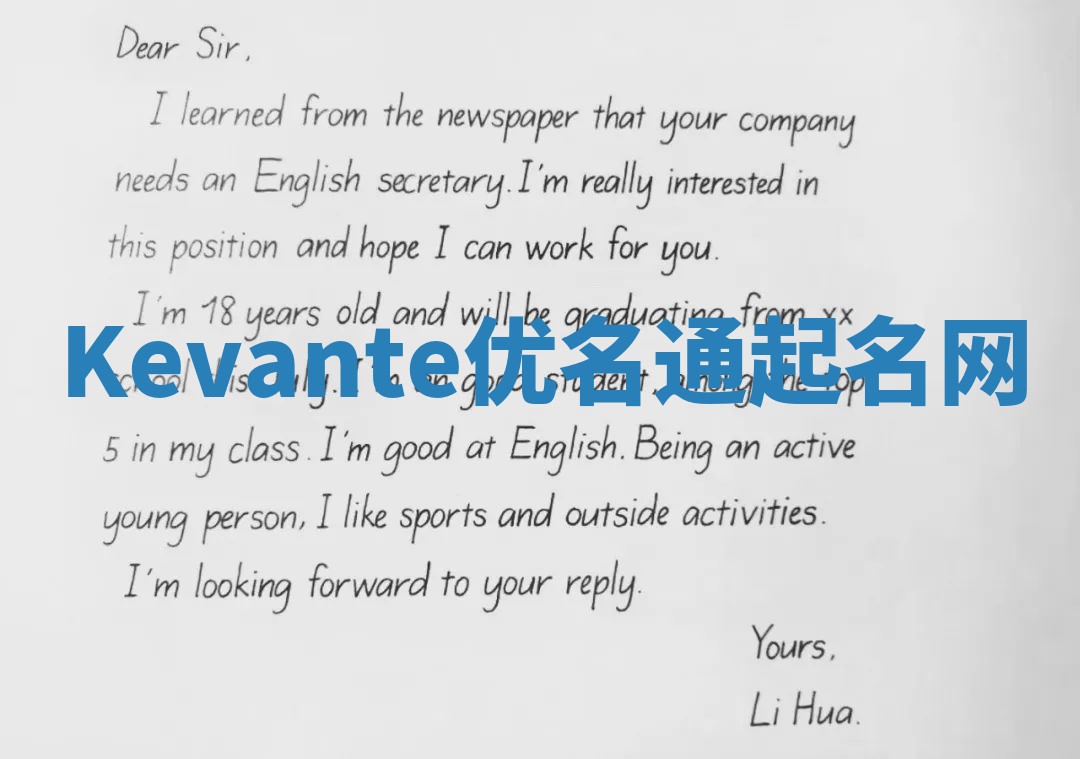 Dear Sir,
I learned from the newspaper that your company
needs an English secretary. I'm really interested in
this position and hope I can work for you.
I'm 18 years old and will be graduating from xx
Kevante优名通起名网
school this July. I'm an good student, among the top
5 in my class. I'm good at English. Being an active
young person, I like sports and outside activities.
I'm looking forward to your reply.
Yours,
Li Hua.